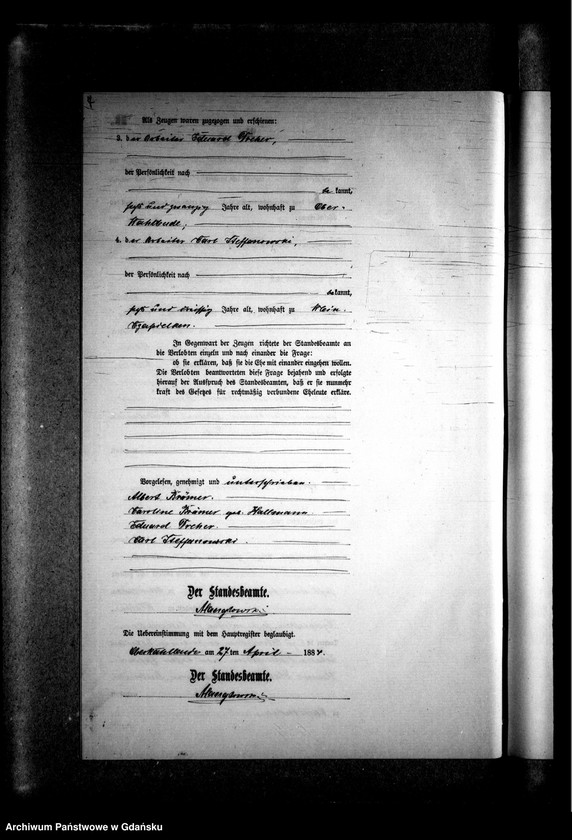 Als Zeugen waren zugezogen und erschienen:
3. der Arbeiter Eduard Treher,
der Persönlichkeit nach
be kannt,
sechs und zwanzig Jahre alt, wohnhaft zu Ober-
4. der Arbeiter Carl Steffanowski,
der Persönlichkeit nach
be kannt,
sechs und dreißig Jahre alt, wohnhaft zu Klein
In Gegenwart der Zeugen richtete der Standesbeamte an
die Verlobten einzeln und nach einander die Frage:
ob sie erklären, daß sie die Ehe mit einander eingehen wollen.
Die Verlobten beantworteten diese Frage bejahend und erfolgte
hierauf der Ausspruch des Standesbeamten, daß er sie nunmehr
kraft des Gesetzes für rechtmäßig verbundene Eheleute erkläre.
Vorgelesen, genehmigt und unterschrieben.
Albert Krämer.
Caroline Krämer geb. Hallmann
Eduard Treher.
Carl Steffanowski.
Der Standesbeamte.
Die Uebereinstimmung mit dem Hauptregister beglaubigt.
am 27 ten April 1884.
Der Standesbeamte.
Archiwum Państwowe w Gdańsku